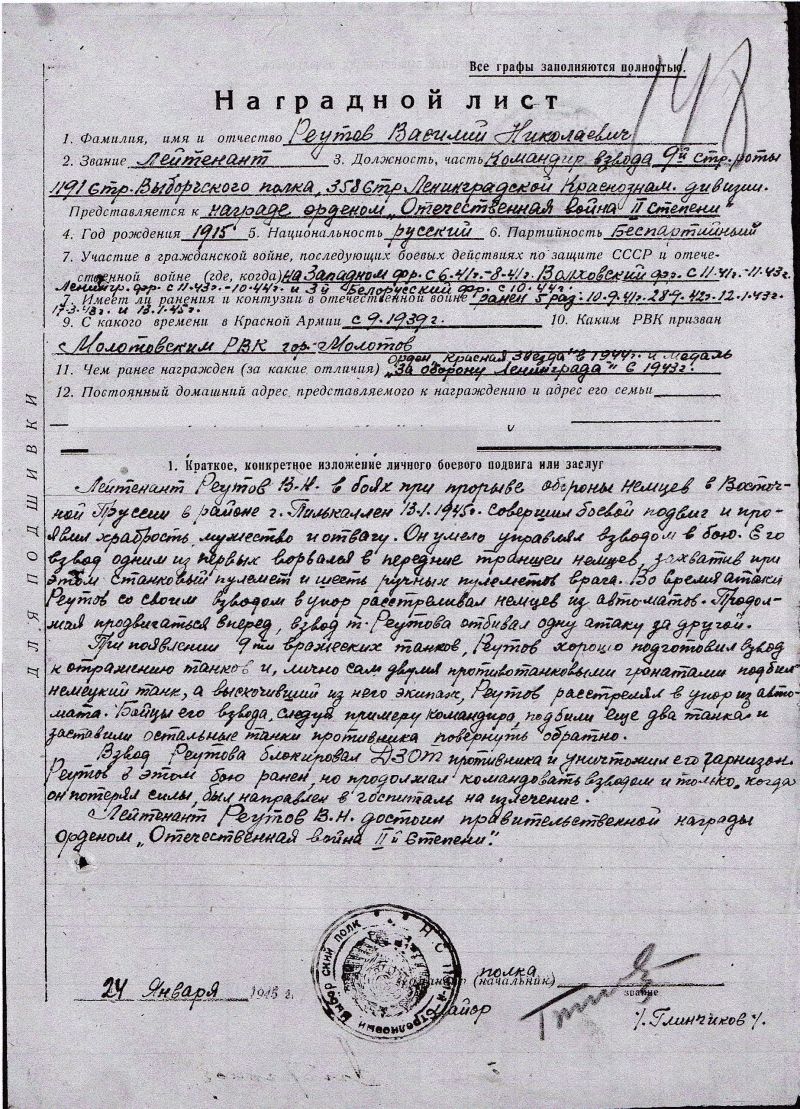 Все графы заполняются полностью.
148
Наградной лист
1. Фамилия, имя и отчество Реутов Василий Николаевич
2. Звание Лейтенант 3. Должность, часть Командир взвода 9й стр. роты
1191 стр. Выборгского полка, 358 стр. Ленинградской Краснознам. дивизии.
Представляется к награде орденом „Отечественная война II степени"
4. Год рождения 1915 5. Национальность русский 6. Партийность Беспартийный
7. Участие в гражданской войне, последующих боевых действиях по защите СССР и отече-
ственной войне (где, когда) на Западном фр. с 6.41г.-8-41г. Волховский фр. с 11-41г.-11.43г.
Ленингр. фр. с 11-43г.-10-44г. и 3й Белорусский фр. с 10.44г.
7. Имеет ли ранения и контузии в отечественной войне ранен 5 раз: 10-9.41г. 28-9.42г. 12-1.43г.
17-3.43г. и 13.1.45г.
9. С какого времени в Красной Армии с 9.1939г. 10. Каким РВК призван
с Молотовским РВК гор. Молотов
орден „Красная Звезда" в 1944г. и медаль
11. Чем ранее награжден (за какие отличия) „За оборону Ленинграда" в 1943г.
12. Постоянный домашний адрес представляемого к награждению и адрес его семьи
ДЛЯ ПОДШИВКИ
1. Краткое, конкретное изложение личного боевого подвига или заслуг
Лейтенант Реутов В.Н. в боях при прорыве обороны немцев в Восточ-
ной Пруссии в районе г. Пилькаллен 13.1.1945г. совершил боевой подвиг и про-
явил храбрость, мужество и отвагу. Он умело управлял взводом в бою. Его
взвод одним из первых ворвался в передние траншеи немцев, захватив при
этом станковый пулемет и шесть ручных пулеметов врага. Во время атаки
Реутов со своим взводом в упор расстреливал немцев из автоматов. Продол-
жая продвигаться вперед, взвод т. Реутова отбивал одну атаку за другой.
При появлении 9ти вражеских танков, Реутов хорошо подготовил взвод
к отражению танков и, лично сам двумя противотанковыми гранатами подбил
немецкий танк, а выскочивший из него экипаж, Реутов расстрелял в упор из авто-
мата. Бойцы его взвода, следуя примеру командира, подбили еще два танка и
заставили остальные танки противника повернуть обратно.
Взвод Реутова блокировал ДЗОТ противника и уничтожил его гарнизон.
Реутов в этом бою ранен, но продолжал командовать взводом и только, когда
он потерял силы, был направлен в госпиталь на излечение.
Лейтенант Реутов В.Н. достоин правительственной награды
орденом „Отечественная война II й степени".
Стрелковый Выборгский полк
полка
24 Января 1945 г. (начальник)
звание
Майор /. Глинчиков /.